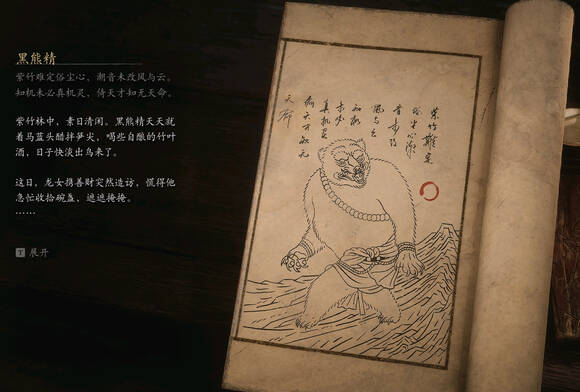 黑熊精
紫竹难定俗尘心、潮音未改风与云。
知机未必真机灵、倚天才知无天命。
紫竹林中，素日清闲。黑熊精天天就
着马蓝头醋拌笋尖，喝些自酿的竹叶
酒，日子快淡出鸟来了。
这日，龙女携善财突然造访，慌得他
急忙收拾碗盏、遮遮掩掩。
……
T 展开
紫竹難定
俗尘心潮
音未改
风与云
知机
未必
真机灵
倚天才知无
天命